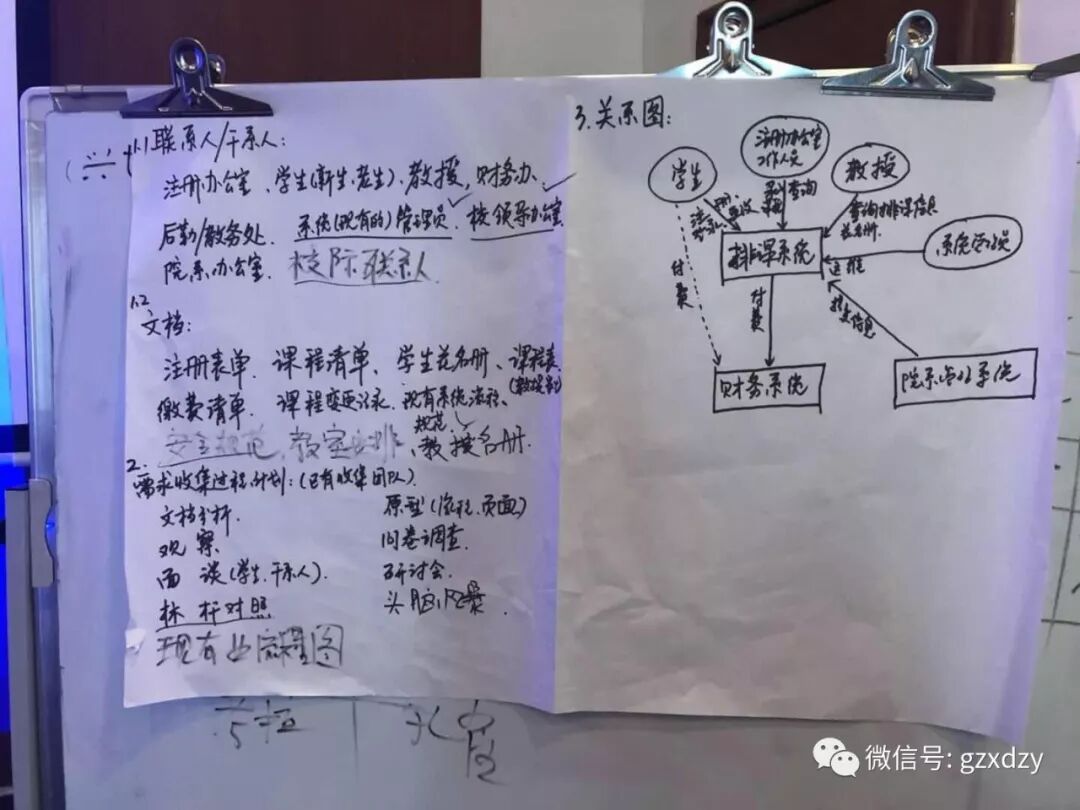 1.1 联系人/干系人:
注册办公室、学生(新生、老生)、教授、财务办、
后勤/教务处、系统(现有的)管理员、校领导办公室
院系办公室、校际联系人
1.2
文档:
注册表单、课程清单、学生花名册、课程表
(教授名)
缴费清单、课程变更记录、现有系统流程、
规范、
安全规范、教室安排、教授名册.
2.
需求收集过程计划:(已有收集团队)
文档分析.
观察
面谈(学生、干系人).
标杆对照
现有业务流程图
原型(流程、页面)
问卷调查.
研讨会.
头脑风暴.
3.关系图:
学生
注册办公室
工作人员
教授
系统管理员
查询
查询排课信息
花名册.
排课系统
运维
付费
付费
信息
财务系统
院系管理系统
微信号: gzxdzy